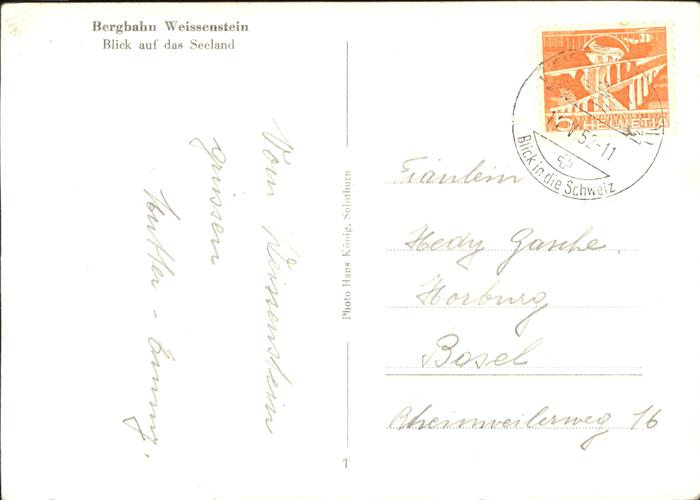 Bergbahn Weissenstein
Blick auf das Seeland
Vom Weissenstein
grüssen
Mutter - Emmy.
Photo Hans König, Solothurn
5 HELVETIA
V 52-11
Blick in die Schweiz
Fräulein
Hedy Gasche.
Horburg
Basel
Rheinweilerweg 16